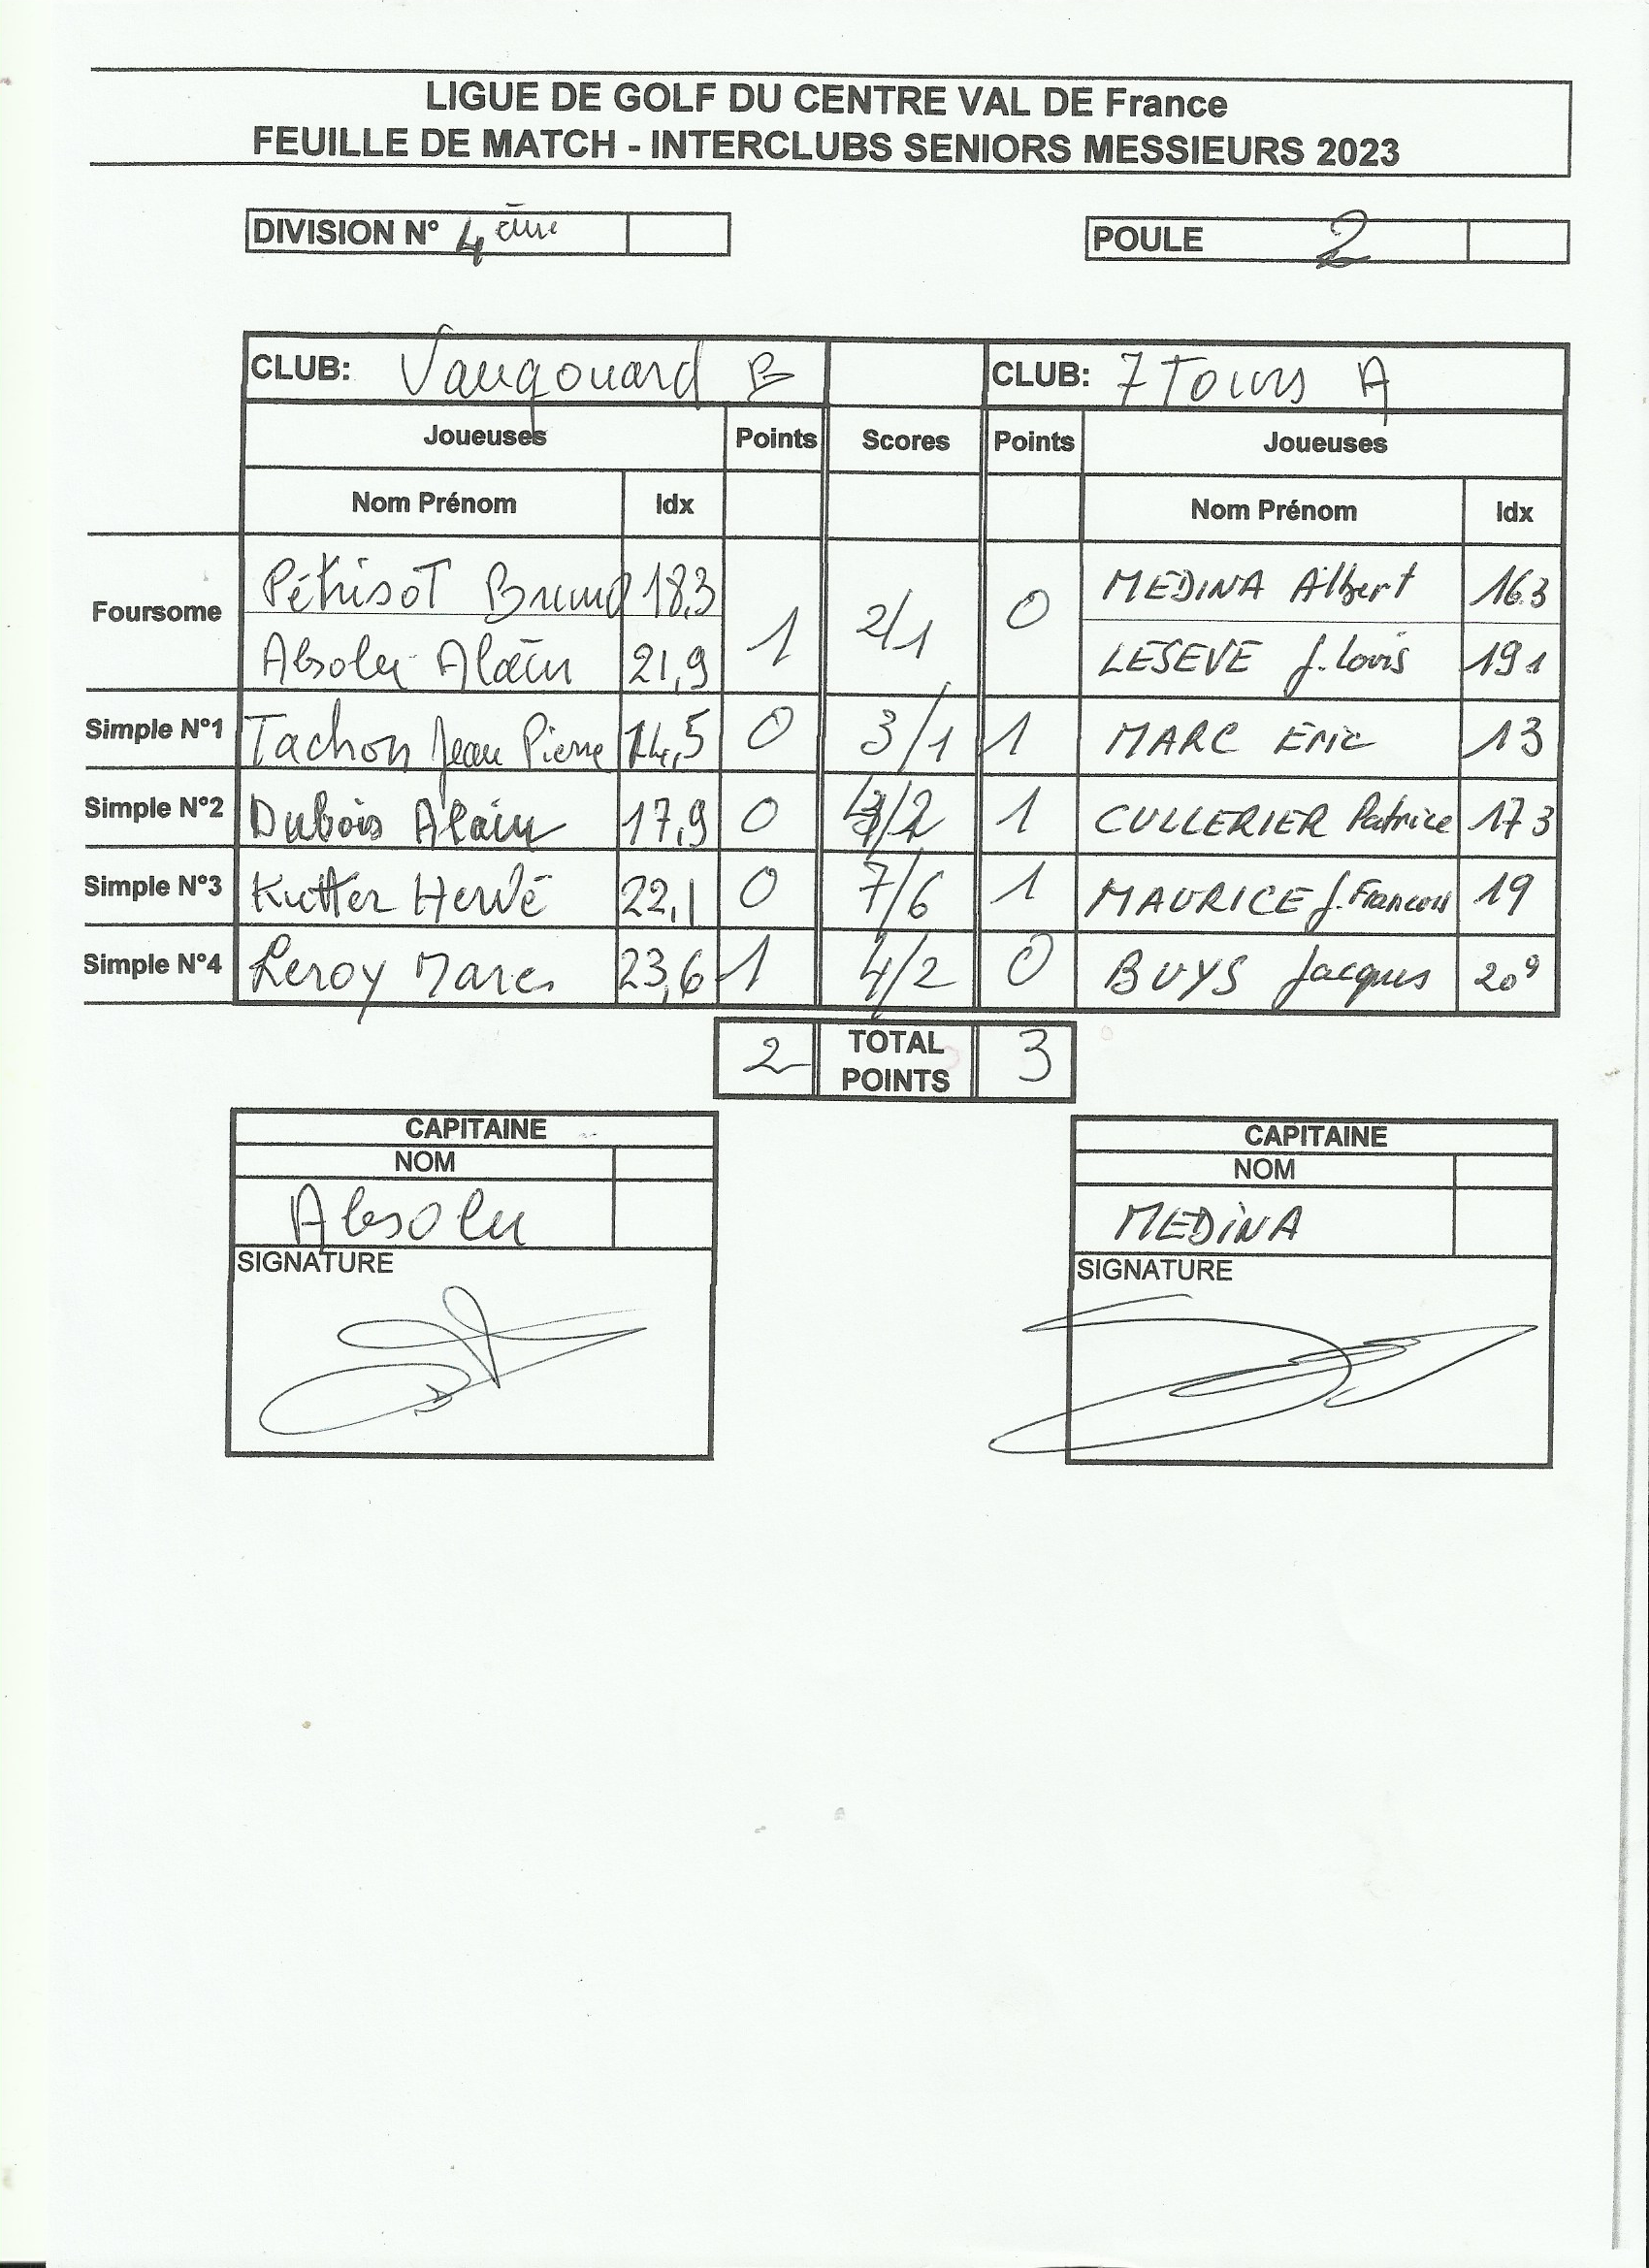 LIGUE DE GOLF DU CENTRE VAL DE France
FEUILLE DE MATCH - INTERCLUBS SENIORS MESSIEURS 2023
DIVISION N° 4ème POULE 2
CLUB: Vaugouard B CLUB: 7 Tours A
Joueuses Points Scores Points Joueuses
Nom Prénom Idx Nom Prénom Idx
Pétrisot Bruno 18,3 MEDINA Albert 16.3
Foursome 1 2/1 0
Absolu Alain 21,9 LESEVE J. Louis 19.1
Simple N°1 Tachon Jean Pierre 14,5 0 3/1 1 MARC Eric 13
Simple N°2 Dubois Alain 17,9 0 /2 1 CULLERIER Patrice 17 3
Simple N°3 Kutter Hervé 22,1 0 7/6 1 MAURICE J. Francois 19
Simple N°4 Leroy Marc 23,6 1 4/2 0 BUYS Jacques 20 9
2 TOTAL POINTS 3
CAPITAINE CAPITAINE
NOM NOM
Absolu MEDINA
SIGNATURE SIGNATURE